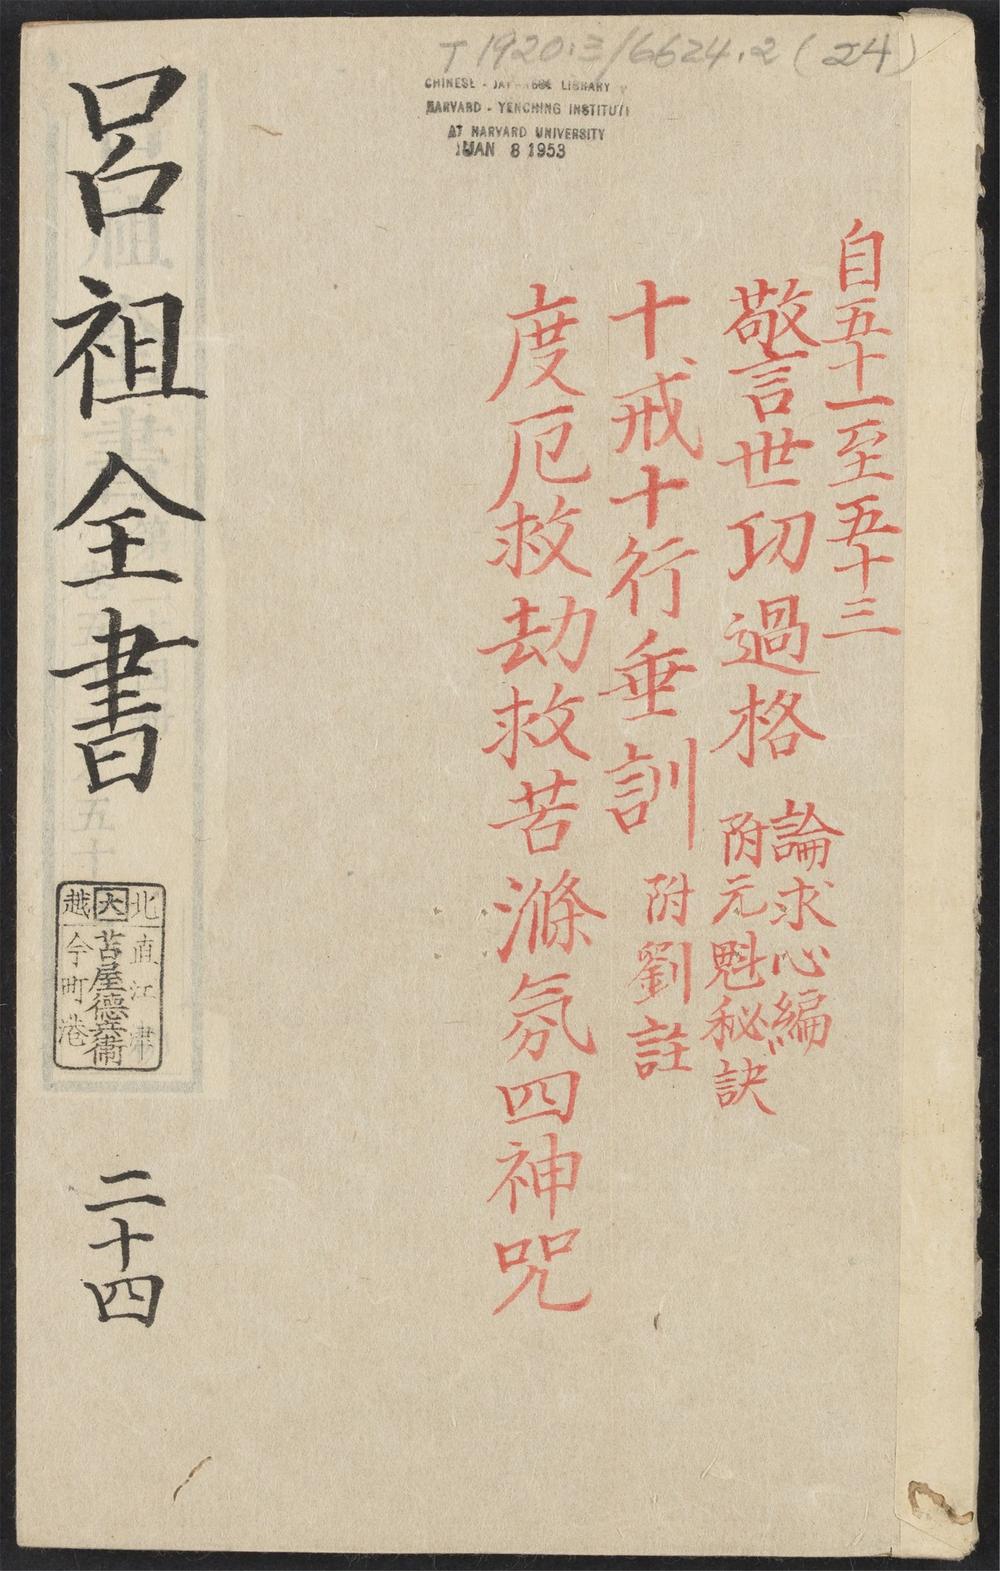 T 1920.3/6624.2 (24)
CHINESE - JAPANESE LIBRARY
HARVARD - YENCHING INSTITUTE
AT HARVARD UNIVERSITY
JAN 8 1953
自五十一至五十三
警世功過格
論求心編
附元魁秘訣
十戒十行垂訓
附劉註
度厄救劫救苦滌氛四神咒
呂祖全書
二十四
北
直江津
大
苫屋德兵衞
越
今町港